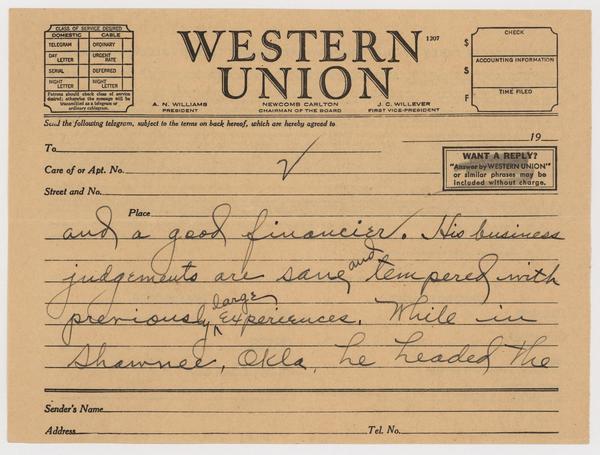 CLASS OF SERVICE DESIRED
DOMESTIC CABLE
TELEGRAM ORDINARY
DAY LETTER URGENT RATE
SERIAL DEFERRED
NIGHT LETTER NIGHT LETTER
Patrons should check class of service
desired; otherwise the message will be
transmitted as a telegram or
ordinary cablegram.
WESTERN
UNION
1207
A. N. WILLIAMS
PRESIDENT
NEWCOMB CARLTON
CHAIRMAN OF THE BOARD
J. C. WILLEVER
FIRST VICE-PRESIDENT
$
S
F
CHECK
ACCOUNTING INFORMATION
TIME FILED
Send the following telegram, subject to the terms on back hereof, which are hereby agreed to
19
To
Care of or Apt. No.
Street and No.
Place
WANT A REPLY?
"Answer by WESTERN UNION"
or similar phrases may be
included without charge.
and a good financier. His business
judgements are sane and tempered with
previously large experiences. While in
Shawnee, Okla, he headed the
Sender's Name
Address Tel. No.